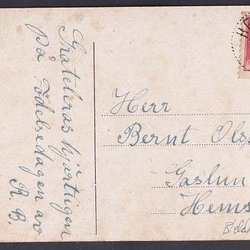 Grateleras hjärtligen
På Födelsedagen av
R. B.
Herr
Bernt Ols
Gaslun
Hems